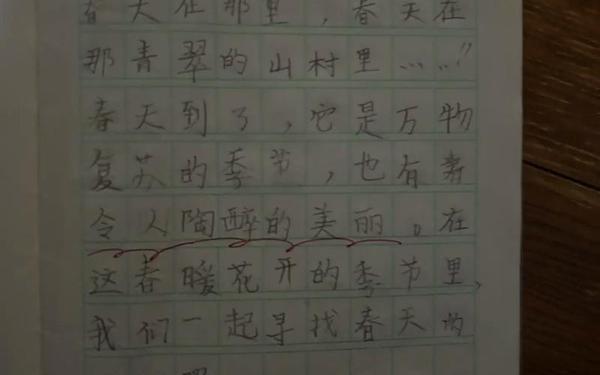 春天在那里，春天在
那青翠的山村里……”
春天到了，它是万物
复苏的季节，也有着
令人陶醉的美丽。在
这春暖花开的季节里，
我们一起寻找春天的